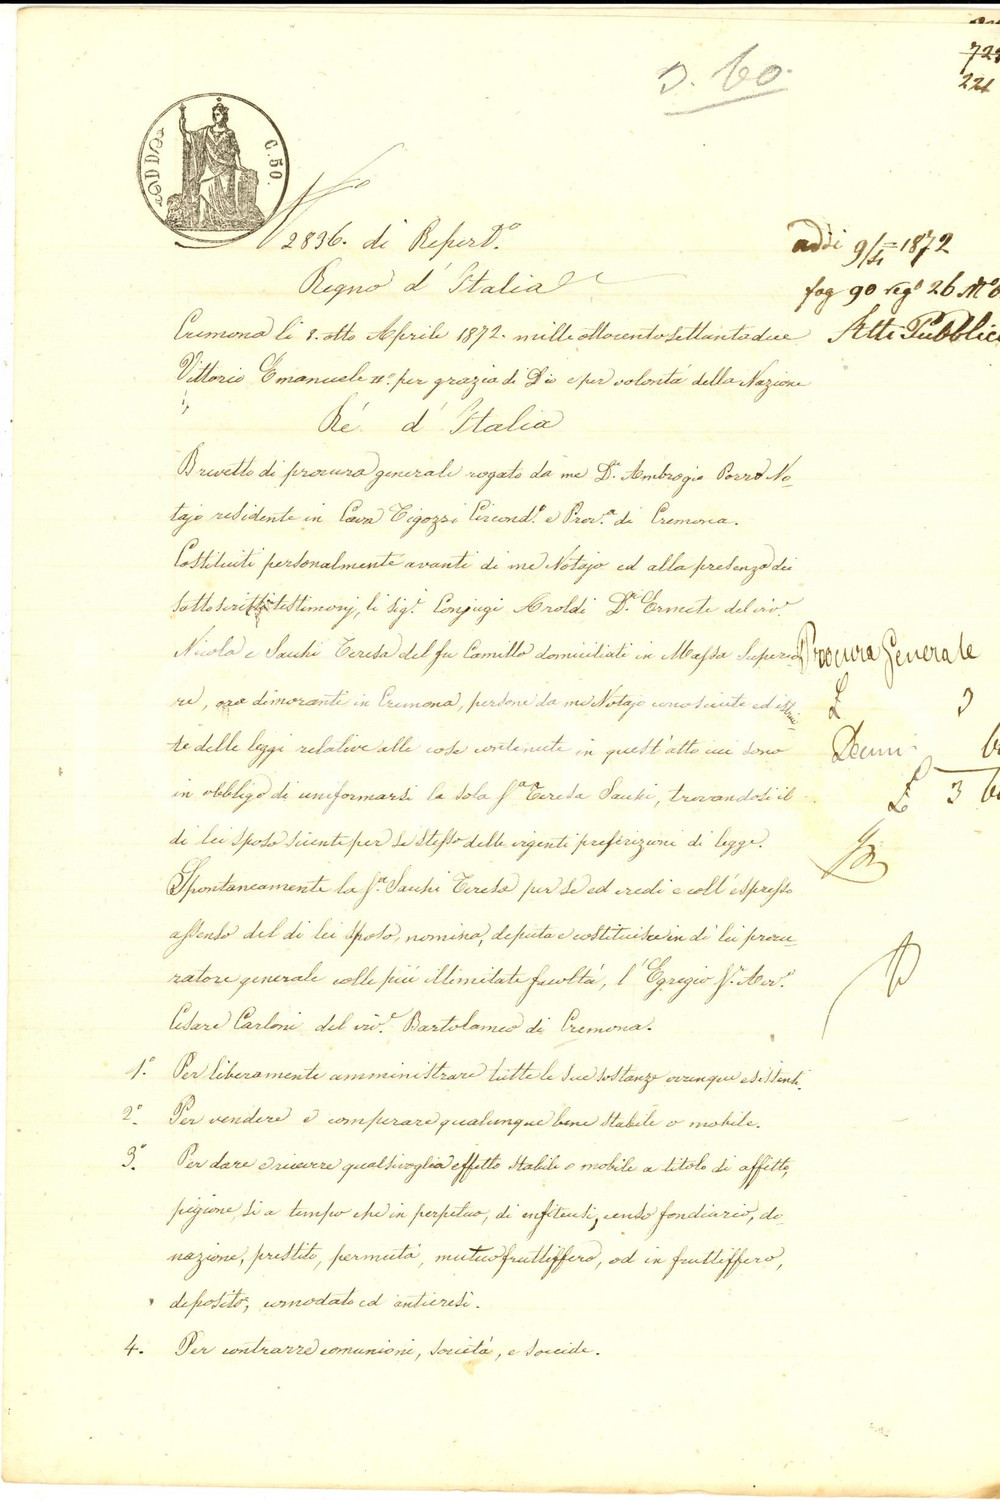 3. 60.
722
221
C. 50.
N.o 2836. di Repert.o
Regno d'Italia
Cremona li 8. otto Aprile 1872. mille ottocento settantadue
Vittorio Emanuele II.o per grazia di Dio e per volontà della Nazione
Ré d'Italia
addi 9/4 = 1872
fog 90 reg.o 26 N.o
Atti Pubblici
Brevetto di procura generale rogato da me D.r Ambrogio Porro No-
tajo residente in Cava Tigozzi Circond.o e Prov.a di Cremona.
Costituiti personalmente avanti di me Notajo ed alla presenza dei
sottoscritti testimonj, li sig.i Conjugi Aroldi D.r Ermete del viv.e
Nicola e Sacchi Teresa del fu Camillo domiciliati in Massa Superio-
re, ora dimoranti in Cremona, persone da me Notajo conosciute ed istrui-
te delle leggi relative alle cose contenute in quest'atto cui sono
in obbligo di uniformarsi la sola S.a Teresa Sacchi, trovandosi il
di lei sposo sciente per se stesso delle vigenti prescrizioni di legge.
Spontaneamente la S.a Sacchi Teresa per se ed eredi e coll'espresso
assenso del di lei sposo, nomina, deputa e costituisce in di lei procu-
ratore generale colle più illimitate facoltà, l'Egregio S.r Avv.o
Cesare Carloni del viv.e Bartolameo di Cremona.
Procura Generale
£ 3
Decimi 60
£ 3 60
1.o Per liberamente amministrare tutte le sue sostanze ovunque esistenti.
2.o Per vendere e comperare qualunque bene stabile o mobile.
3.o Per dare e ricevere qualsivoglia effetto stabile o mobile a titolo di affitto,
pigione, si a tempo che in perpetuo, di enfiteusi, censo fondiario, do-
nazione, prestito, permuta, mutuo fruttiffero, od in fruttiffero,
deposito, comodato ed anticresi.
4. Per contrarre comunioni, società, e soccide.